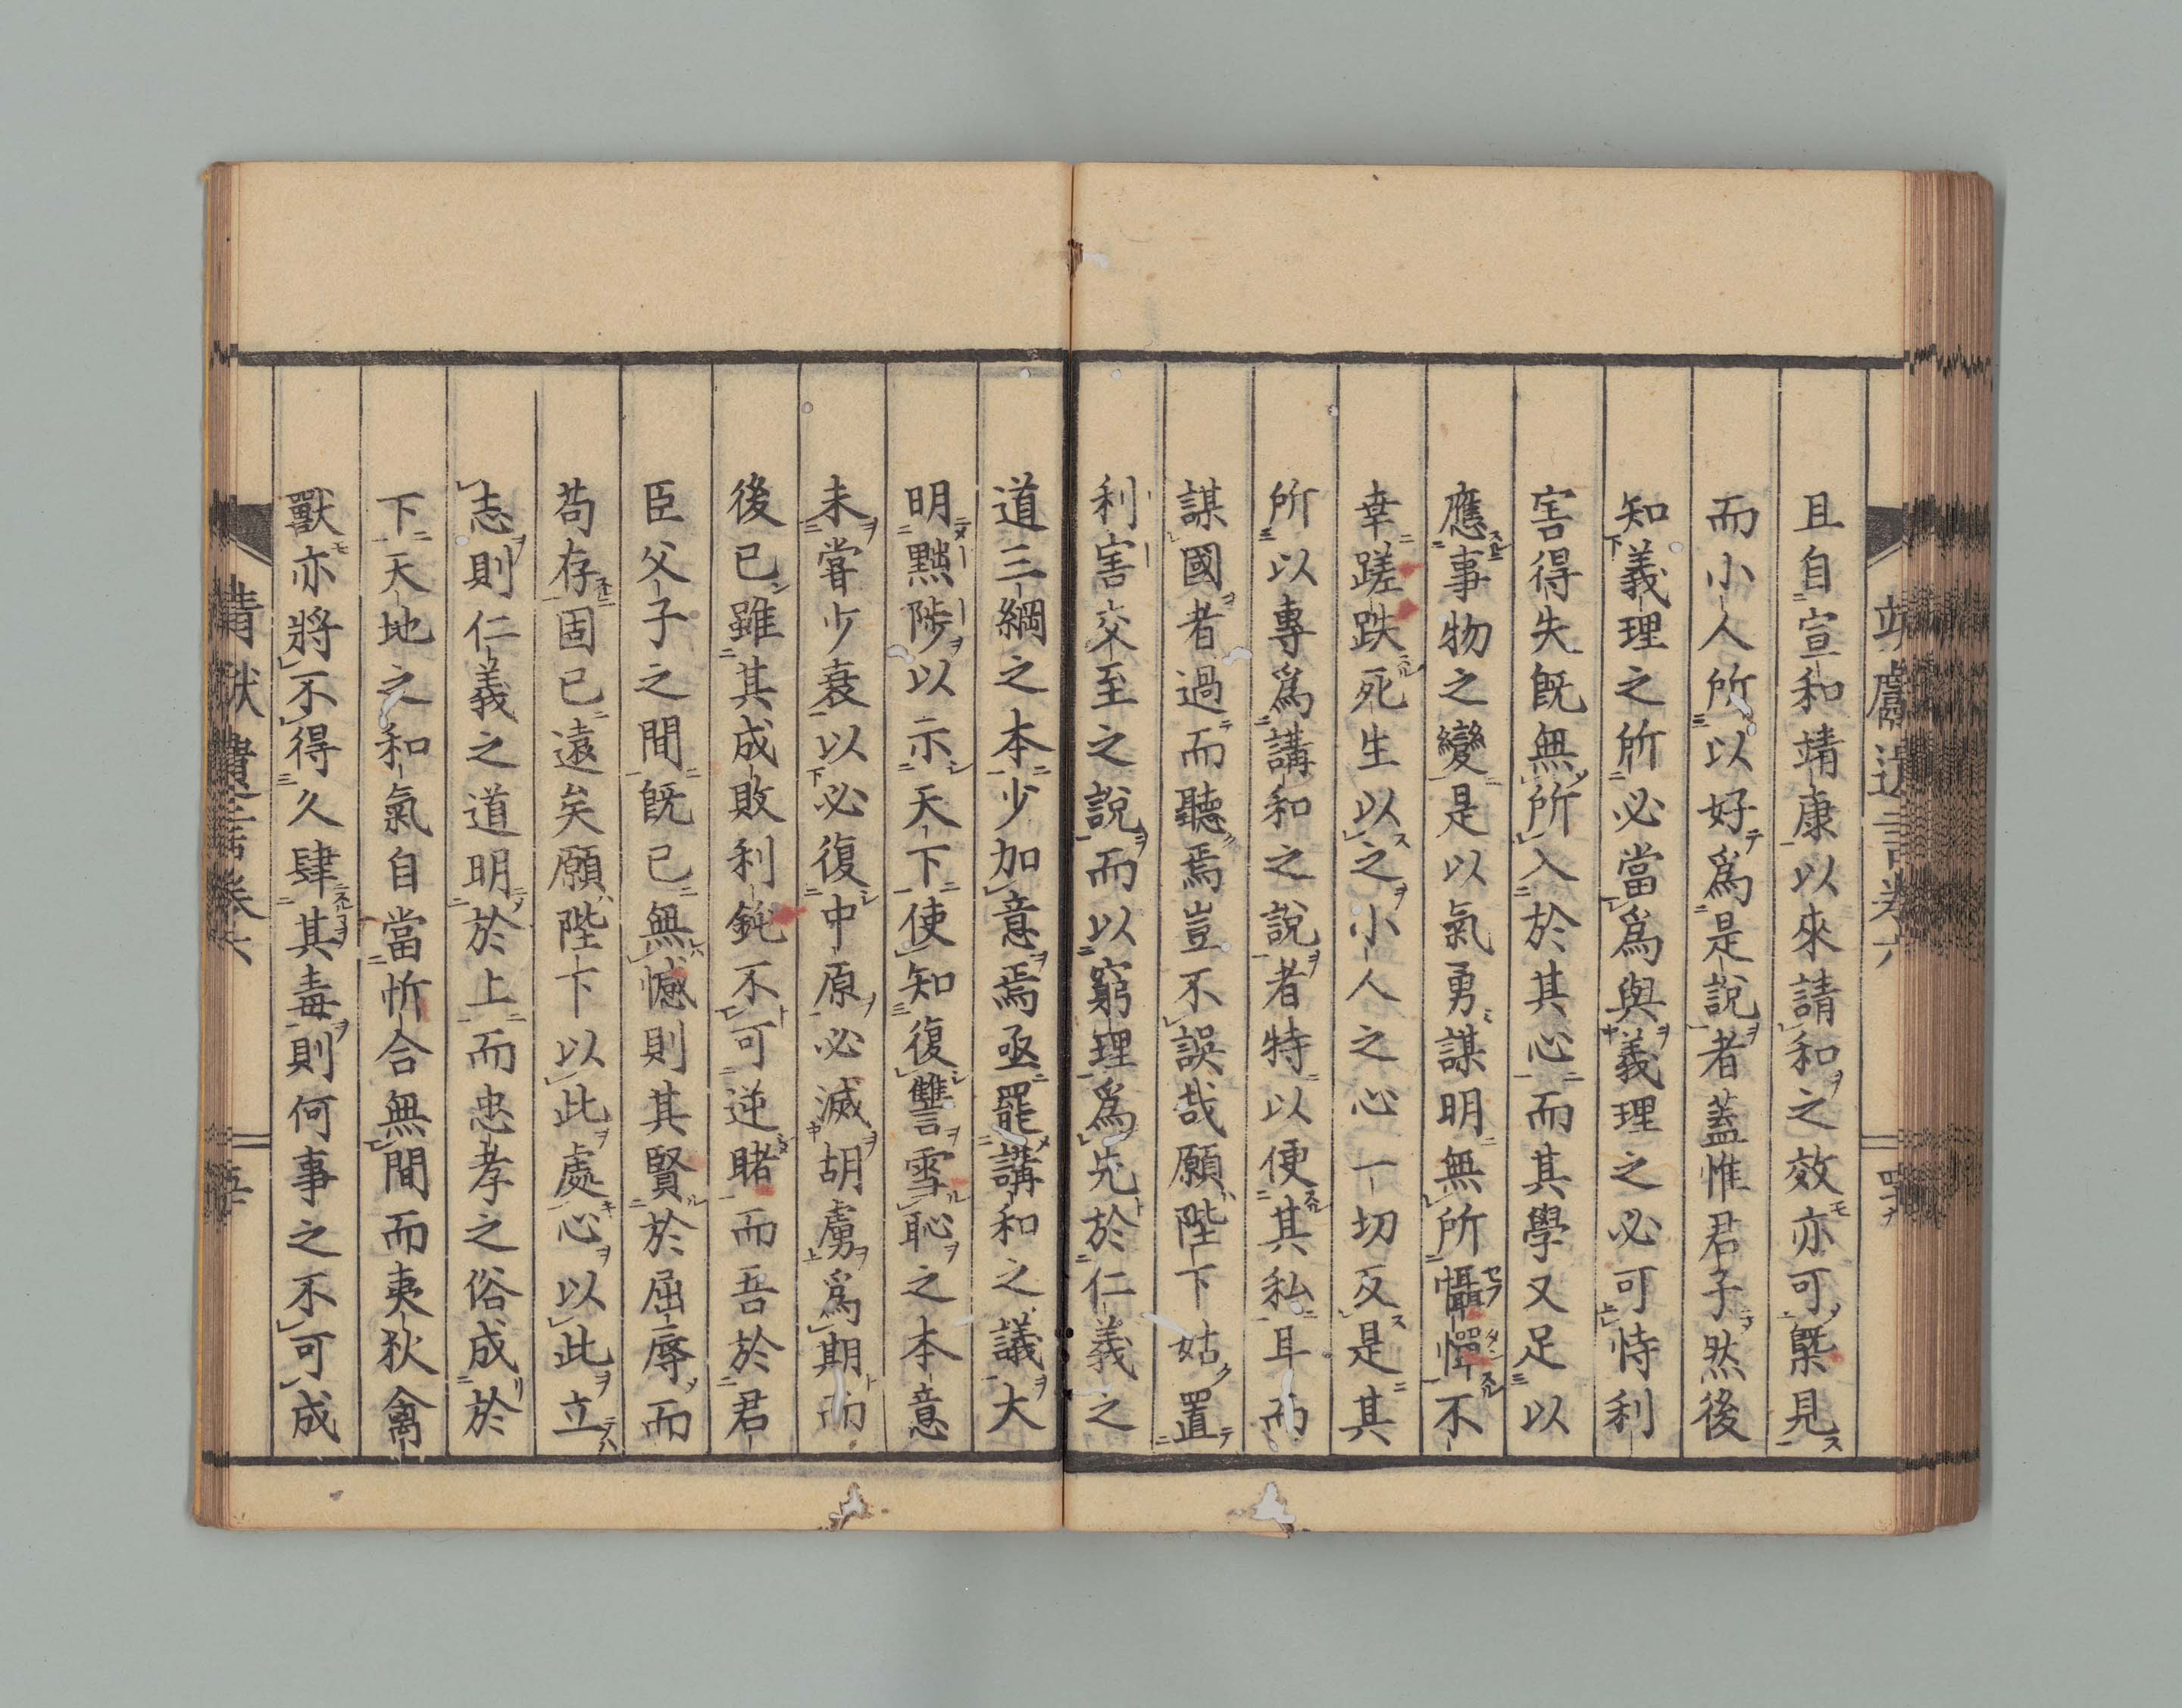 且自宣和靖康以來請和之效亦可槩見
而小人所以好爲是說者蓋惟君子然後
知義理之所必當爲與義理之必可恃利
害得失既無所入於其心而其學又足以
應事物之變是以氣勇謀明無所懾憚不
幸蹉跌死生以之小人之心一切反是其
所以專爲講和之說者特以便其私耳而
謀國者過而聽焉豈不誤哉願陛下姑置
利害交至之說而以窮理爲先於仁義之
道三綱之本少加意焉亟罷講和之議大
明黜陟以示天下使知復讐雪恥之本意
未嘗少衰以必復中原必滅胡虜爲期而
後已雖其成敗利鈍不可逆睹而吾於君
臣父子之間既已無憾則其賢於屈辱而
苟存固已遠矣願陛下以此處心以此立
志則仁義之道明於上而忠孝之俗成於
下天地之和氣自當忻合無間而夷狄禽
獸亦將不得久肆其毒則何事之不可成